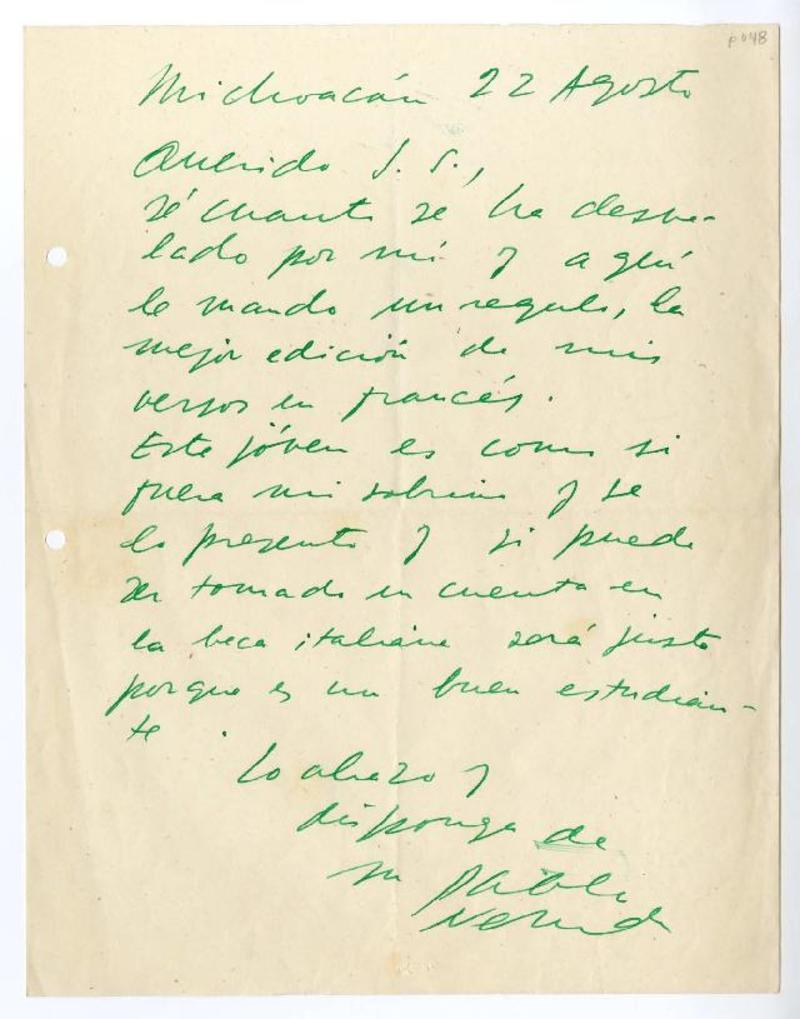 P048
Michoacán 22 Agosto
Querido S. S.,
sé cuanto se ha desve-
lado por mí y aquí
le mando un regalo, la
mejor edición de mis
versos en francés.
Este jóven es como si
fuera mi sobrino y se
lo presento y si puede
ser tomado en cuenta en
la beca italiana será justo
porque es un buen estudian-
te.
Lo abrazo y
disponga de
su Pablo
Neruda